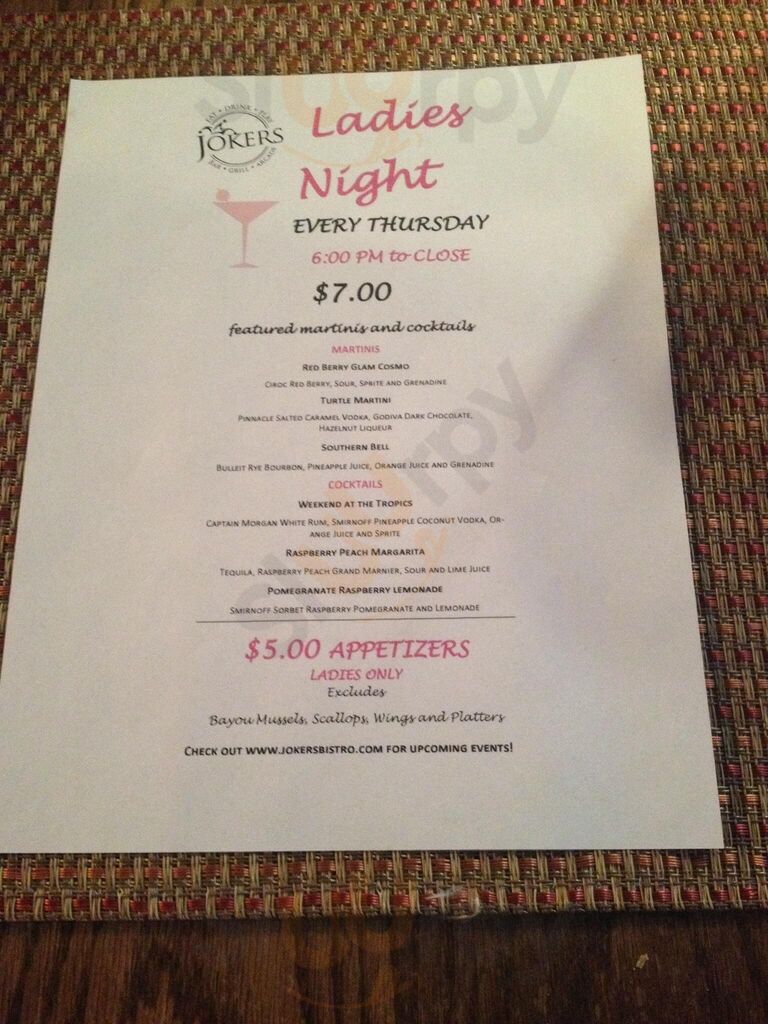 EAT • DRINK • PLAY
JOKERS
BAR • GRILL • ARCADE
Ladies
Night
EVERY THURSDAY
6:00 PM to CLOSE
$7.00
featured martinis and cocktails
MARTINIS
RED BERRY GLAM COSMO
CIROC RED BERRY, SOUR, SPRITE AND GRENADINE
TURTLE MARTINI
PINNACLE SALTED CARAMEL VODKA, GODIVA DARK CHOCOLATE,
HAZELNUT LIQUEUR
SOUTHERN BELL
BULLEIT RYE BOURBON, PINEAPPLE JUICE, ORANGE JUICE AND GRENADINE
COCKTAILS
WEEKEND AT THE TROPICS
CAPTAIN MORGAN WHITE RUM, SMIRNOFF PINEAPPLE COCONUT VODKA, OR-
ANGE JUICE AND SPRITE
RASPBERRY PEACH MARGARITA
TEQUILA, RASPBERRY PEACH GRAND MARNIER, SOUR AND LIME JUICE
POMEGRANATE RASPBERRY LEMONADE
SMIRNOFF SORBET RASPBERRY POMEGRANATE AND LEMONADE
$5.00 APPETIZERS
LADIES ONLY
Excludes
Bayou Mussels, Scallops, Wings and Platters
CHECK OUT WWW.JOKERSBISTRO.COM FOR UPCOMING EVENTS!